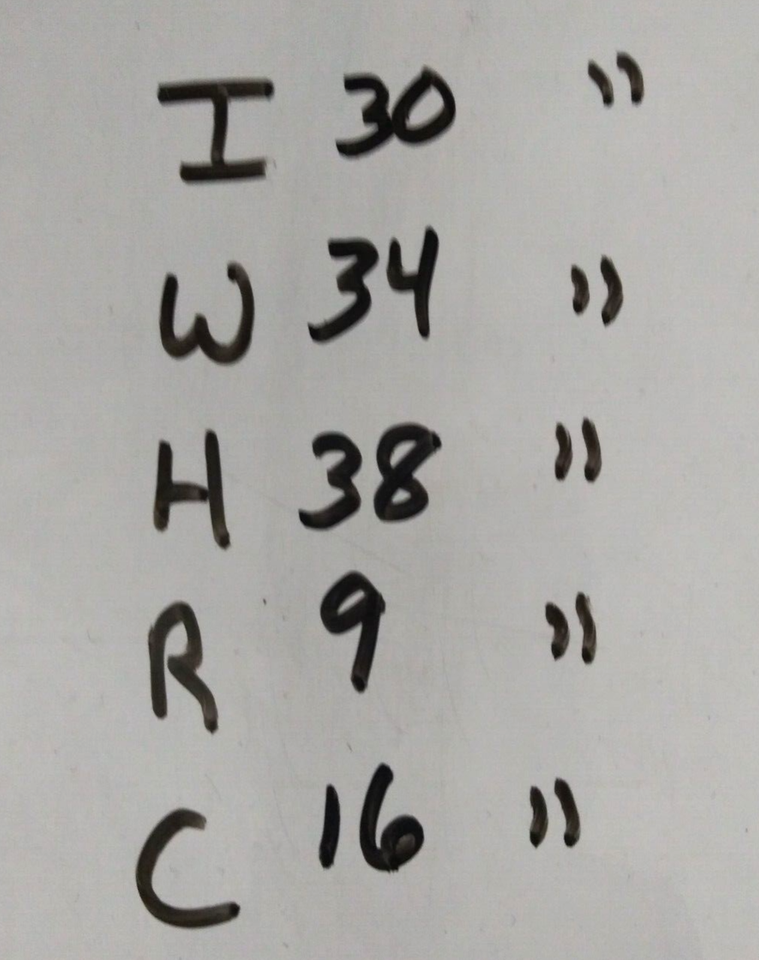 I 30 "
W 34 "
H 38 "
R 9 "
C 16 "